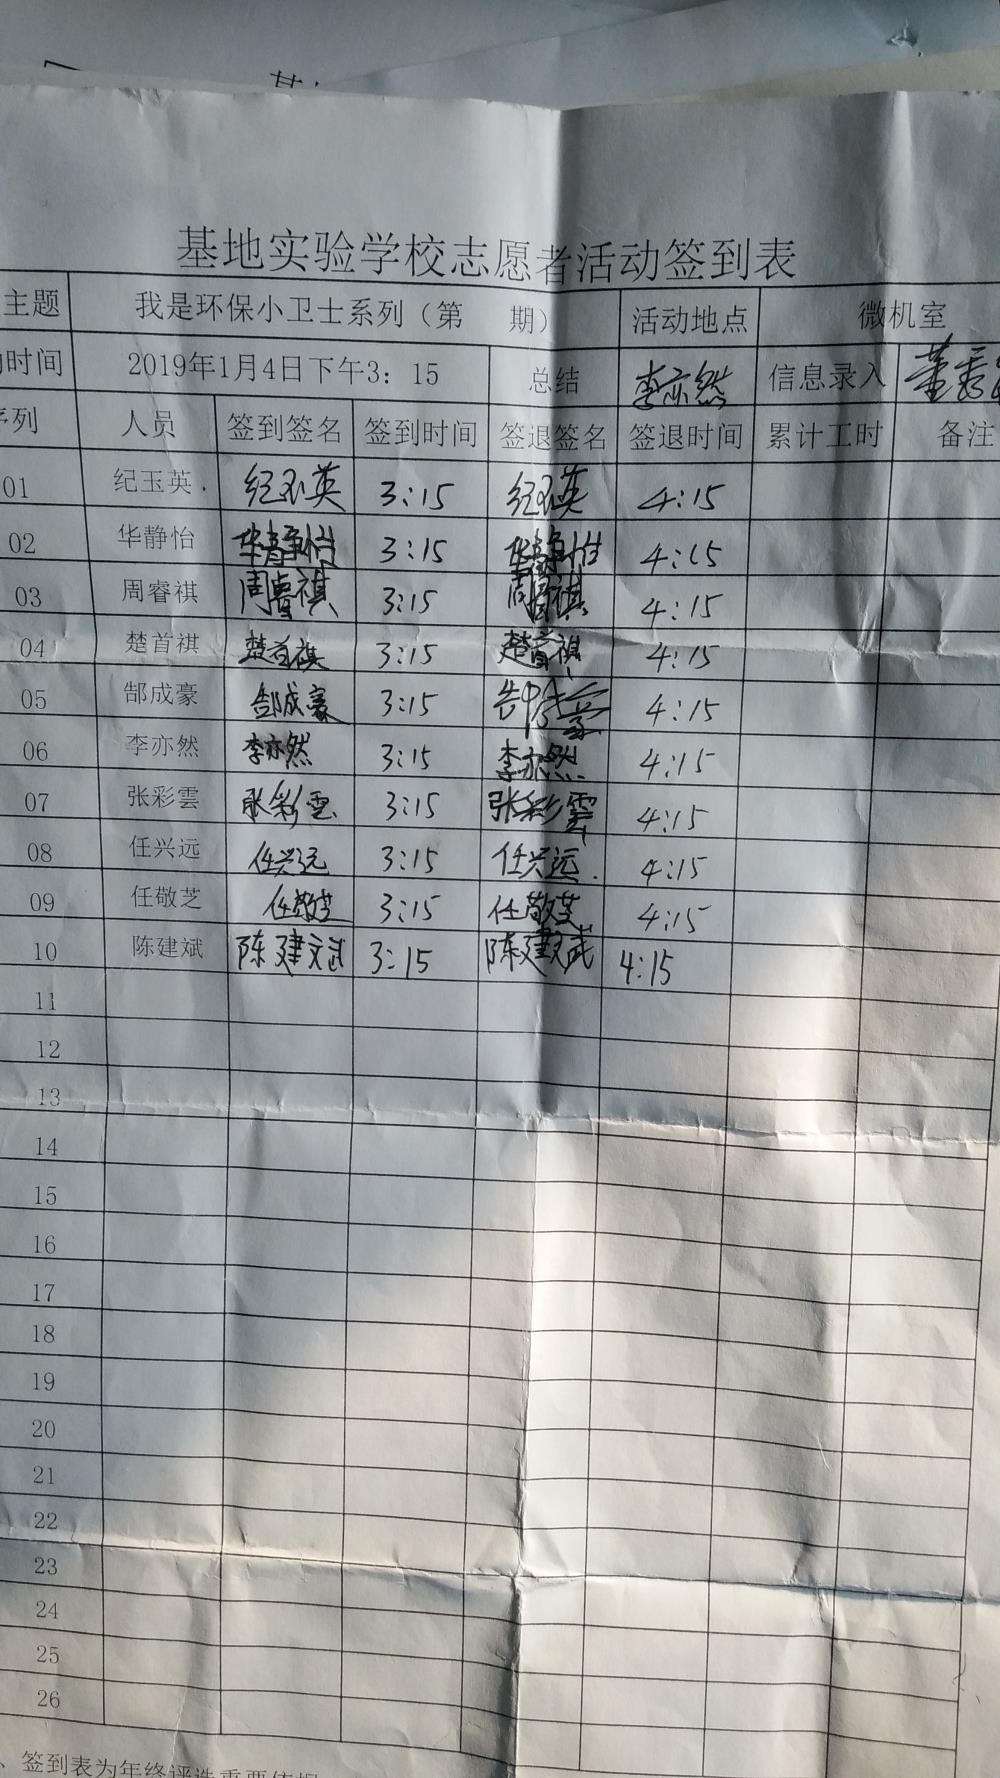 基地实验学校志愿者活动签到表
主题 我是环保小卫士系列（第 期） 活动地点 微机室
时间 2019年1月4日下午3：15 总结 李亦然 信息录入 董秀
序列 人员 签到签名 签到时间 签退签名 签退时间 累计工时 备注
01 纪玉英 纪玉英 3:15 纪玉英 4:15
02 华静怡 华静怡 3:15 华静怡 4:15
03 周睿祺 周睿祺 3:15 周睿祺 4:15
04 楚首祺 楚首祺 3:15 楚首祺 4:15
05 郜成豪 郜成豪 3:15 郜成豪 4:15
06 李亦然 李亦然 3:15 李亦然 4:15
07 张彩雲 张彩雲 3:15 张彩雲 4:15
08 任兴远 任兴远 3:15 任兴远 4:15
09 任敬芝 任敬芝 3:15 任敬芝 4:15
10 陈建斌 陈建斌 3:15 陈建斌 4:15
11
12
13
14
15
16
17
18
19
20
21
22
23
24
25
26
、签到表为年终评选重要依据